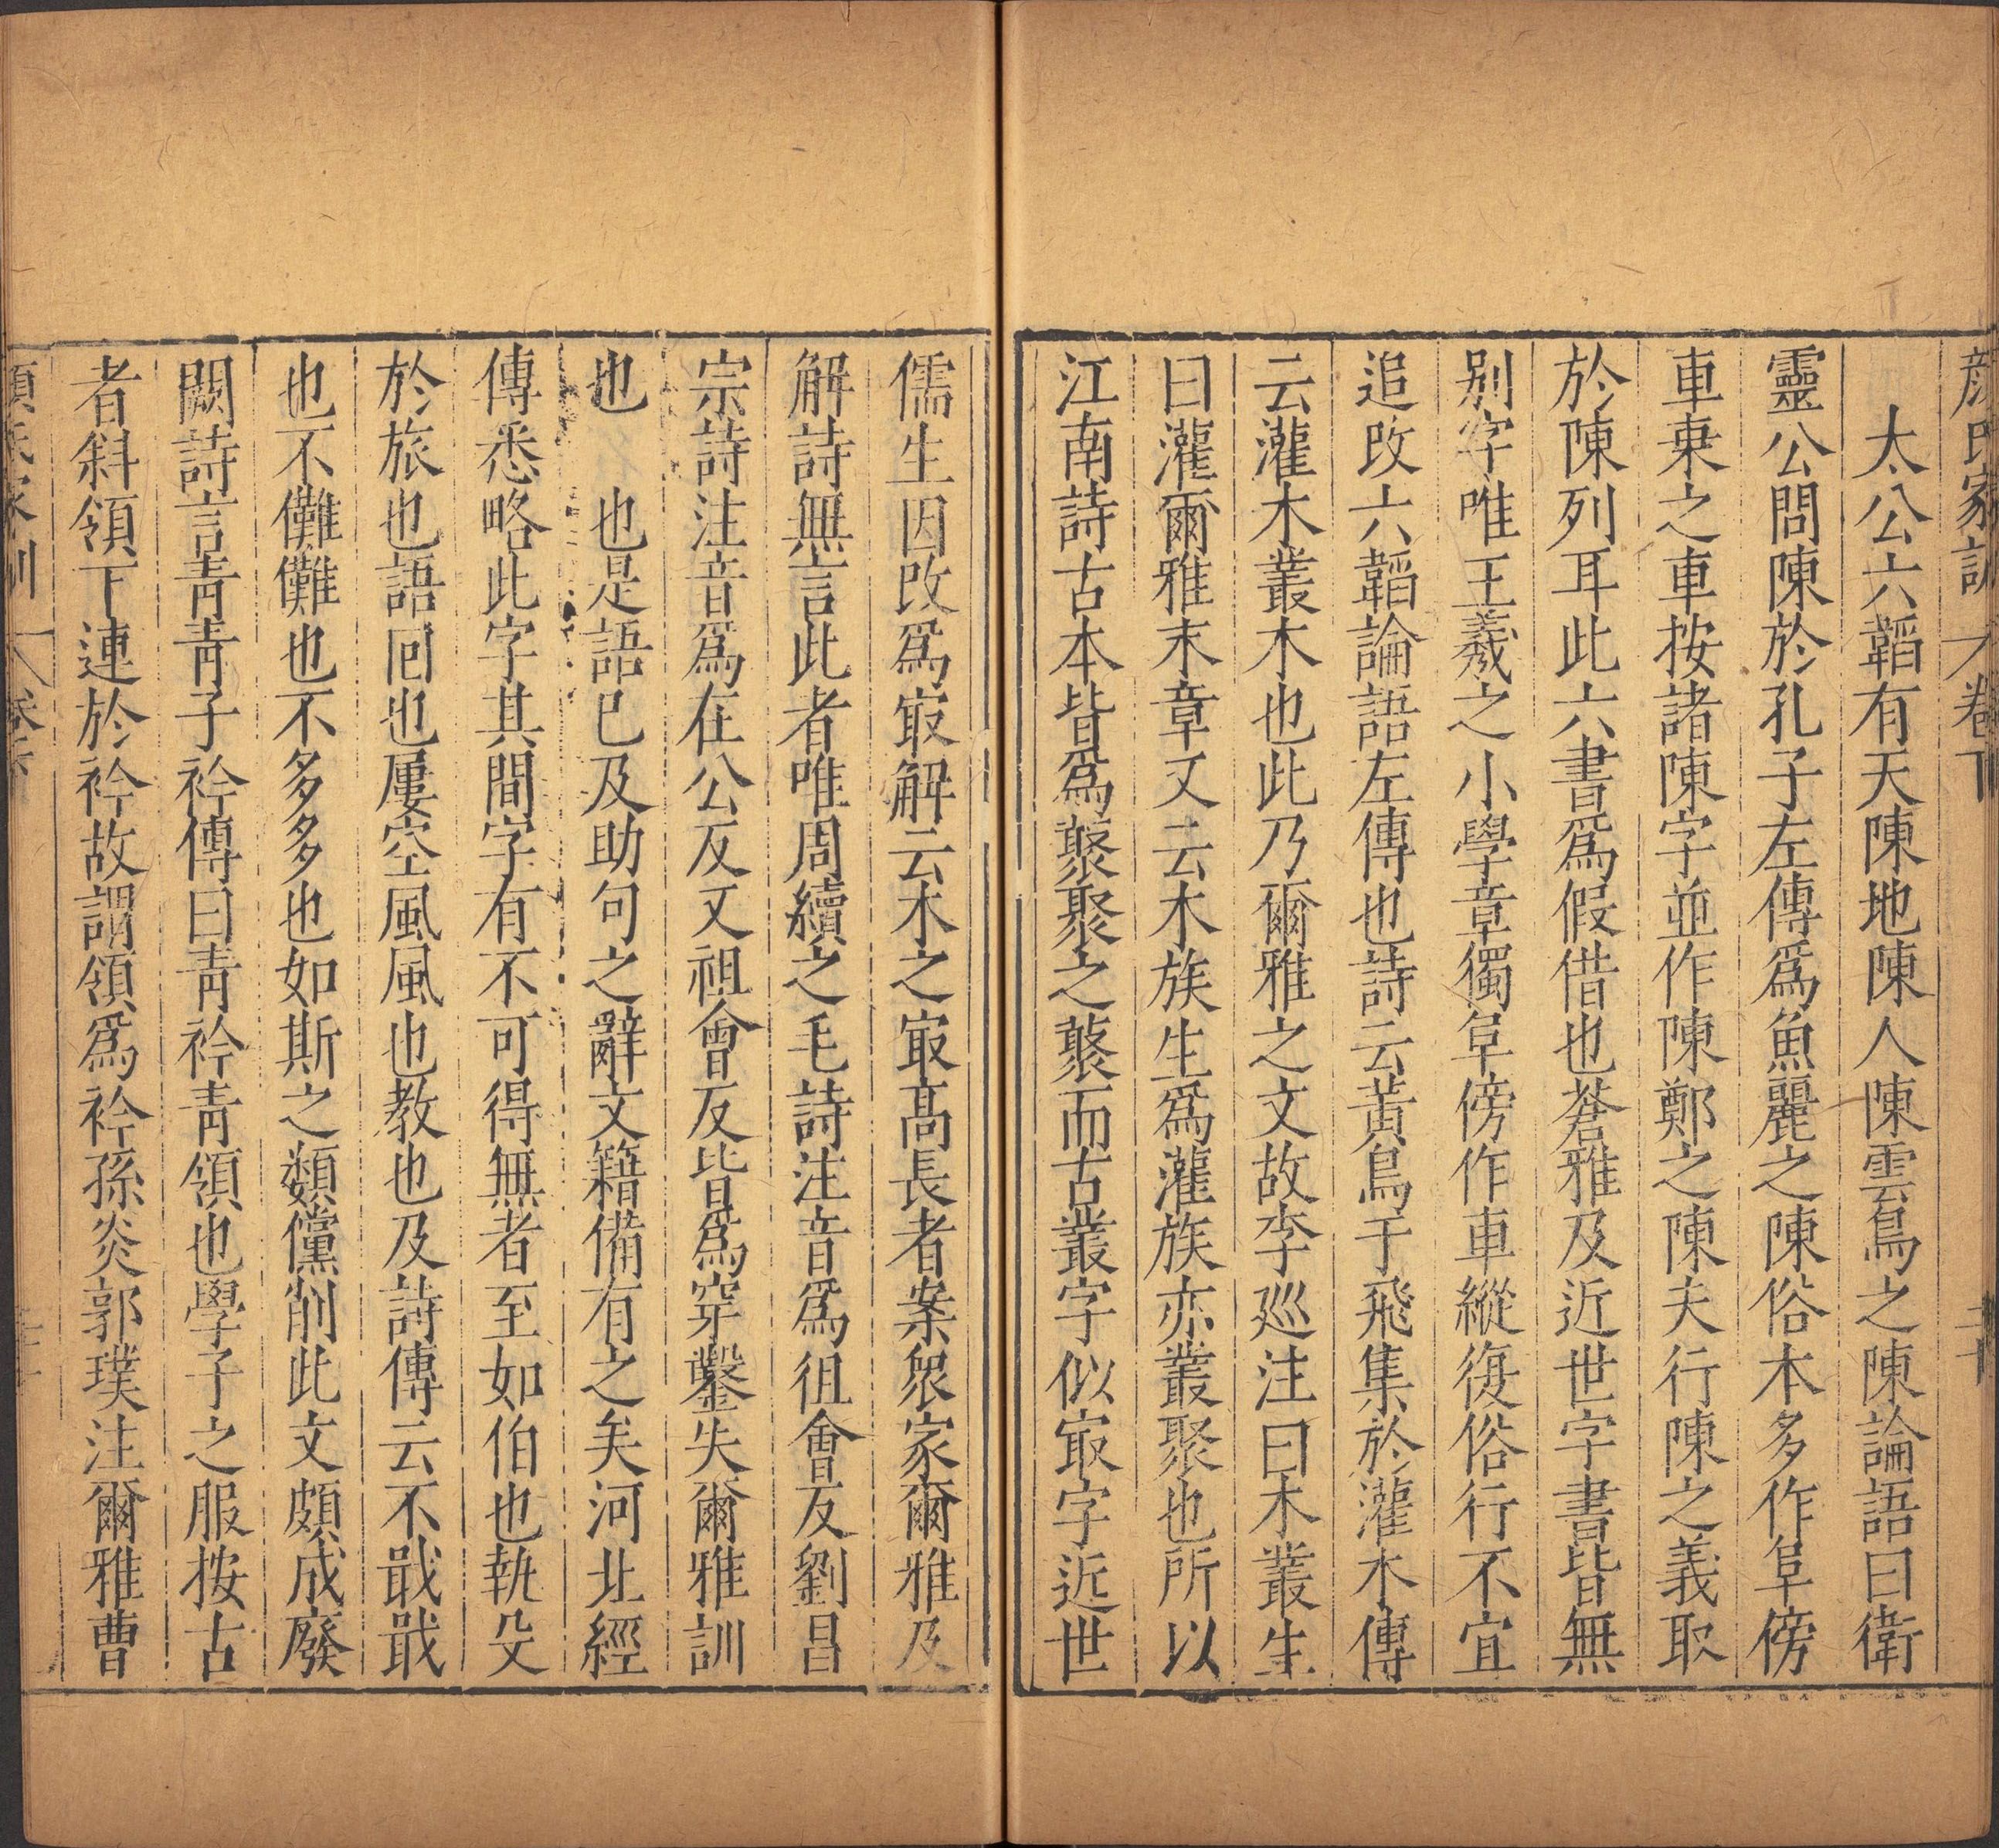 顏氏家訓 卷下 二十
太公六韜有天陳地陳人陳雲鳥之陳論語曰衛
靈公問陳於孔子左傳爲魚麗之陳俗本多作阜傍
車乗之車按諸陳字並作陳鄭之陳夫行陳之義取
於陳列耳此六書爲假借也蒼雅及近世字書皆無
别字唯王羲之小學章獨阜傍作車縱復俗行不宜
追改六韜論語左傳也詩云黃鳥于飛集於灌木傳
云灌木叢木也此乃爾雅之文故李廵注曰木叢生
曰灌爾雅末章又云木族生爲灌族亦叢聚也所以
江南詩古本皆爲藂聚之藂而古叢字似冣字近世
儒生因改爲冣解云木之冣髙長者案衆家爾雅及
解詩無言此者唯周續之毛詩注音爲徂會反劉昌
宗詩注音爲在公反又祖會反皆爲穿鑿失爾雅訓
也 也是語已及助句之辭文籍備有之矣河北經
傳悉略此字其間字有不可得無者至如伯也執殳
於旅也語囘也屢空風風也教也及詩傳云不戢戢
也不儺儺也不多多也如斯之類儻削此文頗成廢
闕詩言青青子衿傳曰青衿青領也學子之服按古
者斜領下連於衿故謂領爲衿孫炎郭璞注爾雅曹